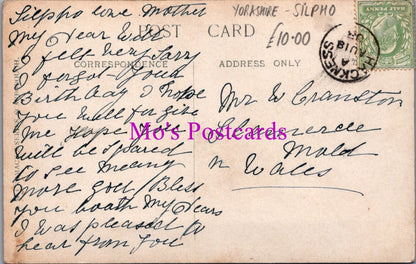 Silpho love Mother
YORKSHIRE - SILPHO
£10.00
My Dear Will
POST CARD
I felt very sorry
CORRESPONDENCE
ADDRESS
forgot your
Birthday I hope
you will forgive
me hope you
will be spared
to see many
more God Bless
you both my Dears
I was pleased to
hear from you
HACKNESS
AU 18
Mr W Cranston
Mold
N Wales
Mo's Postcards